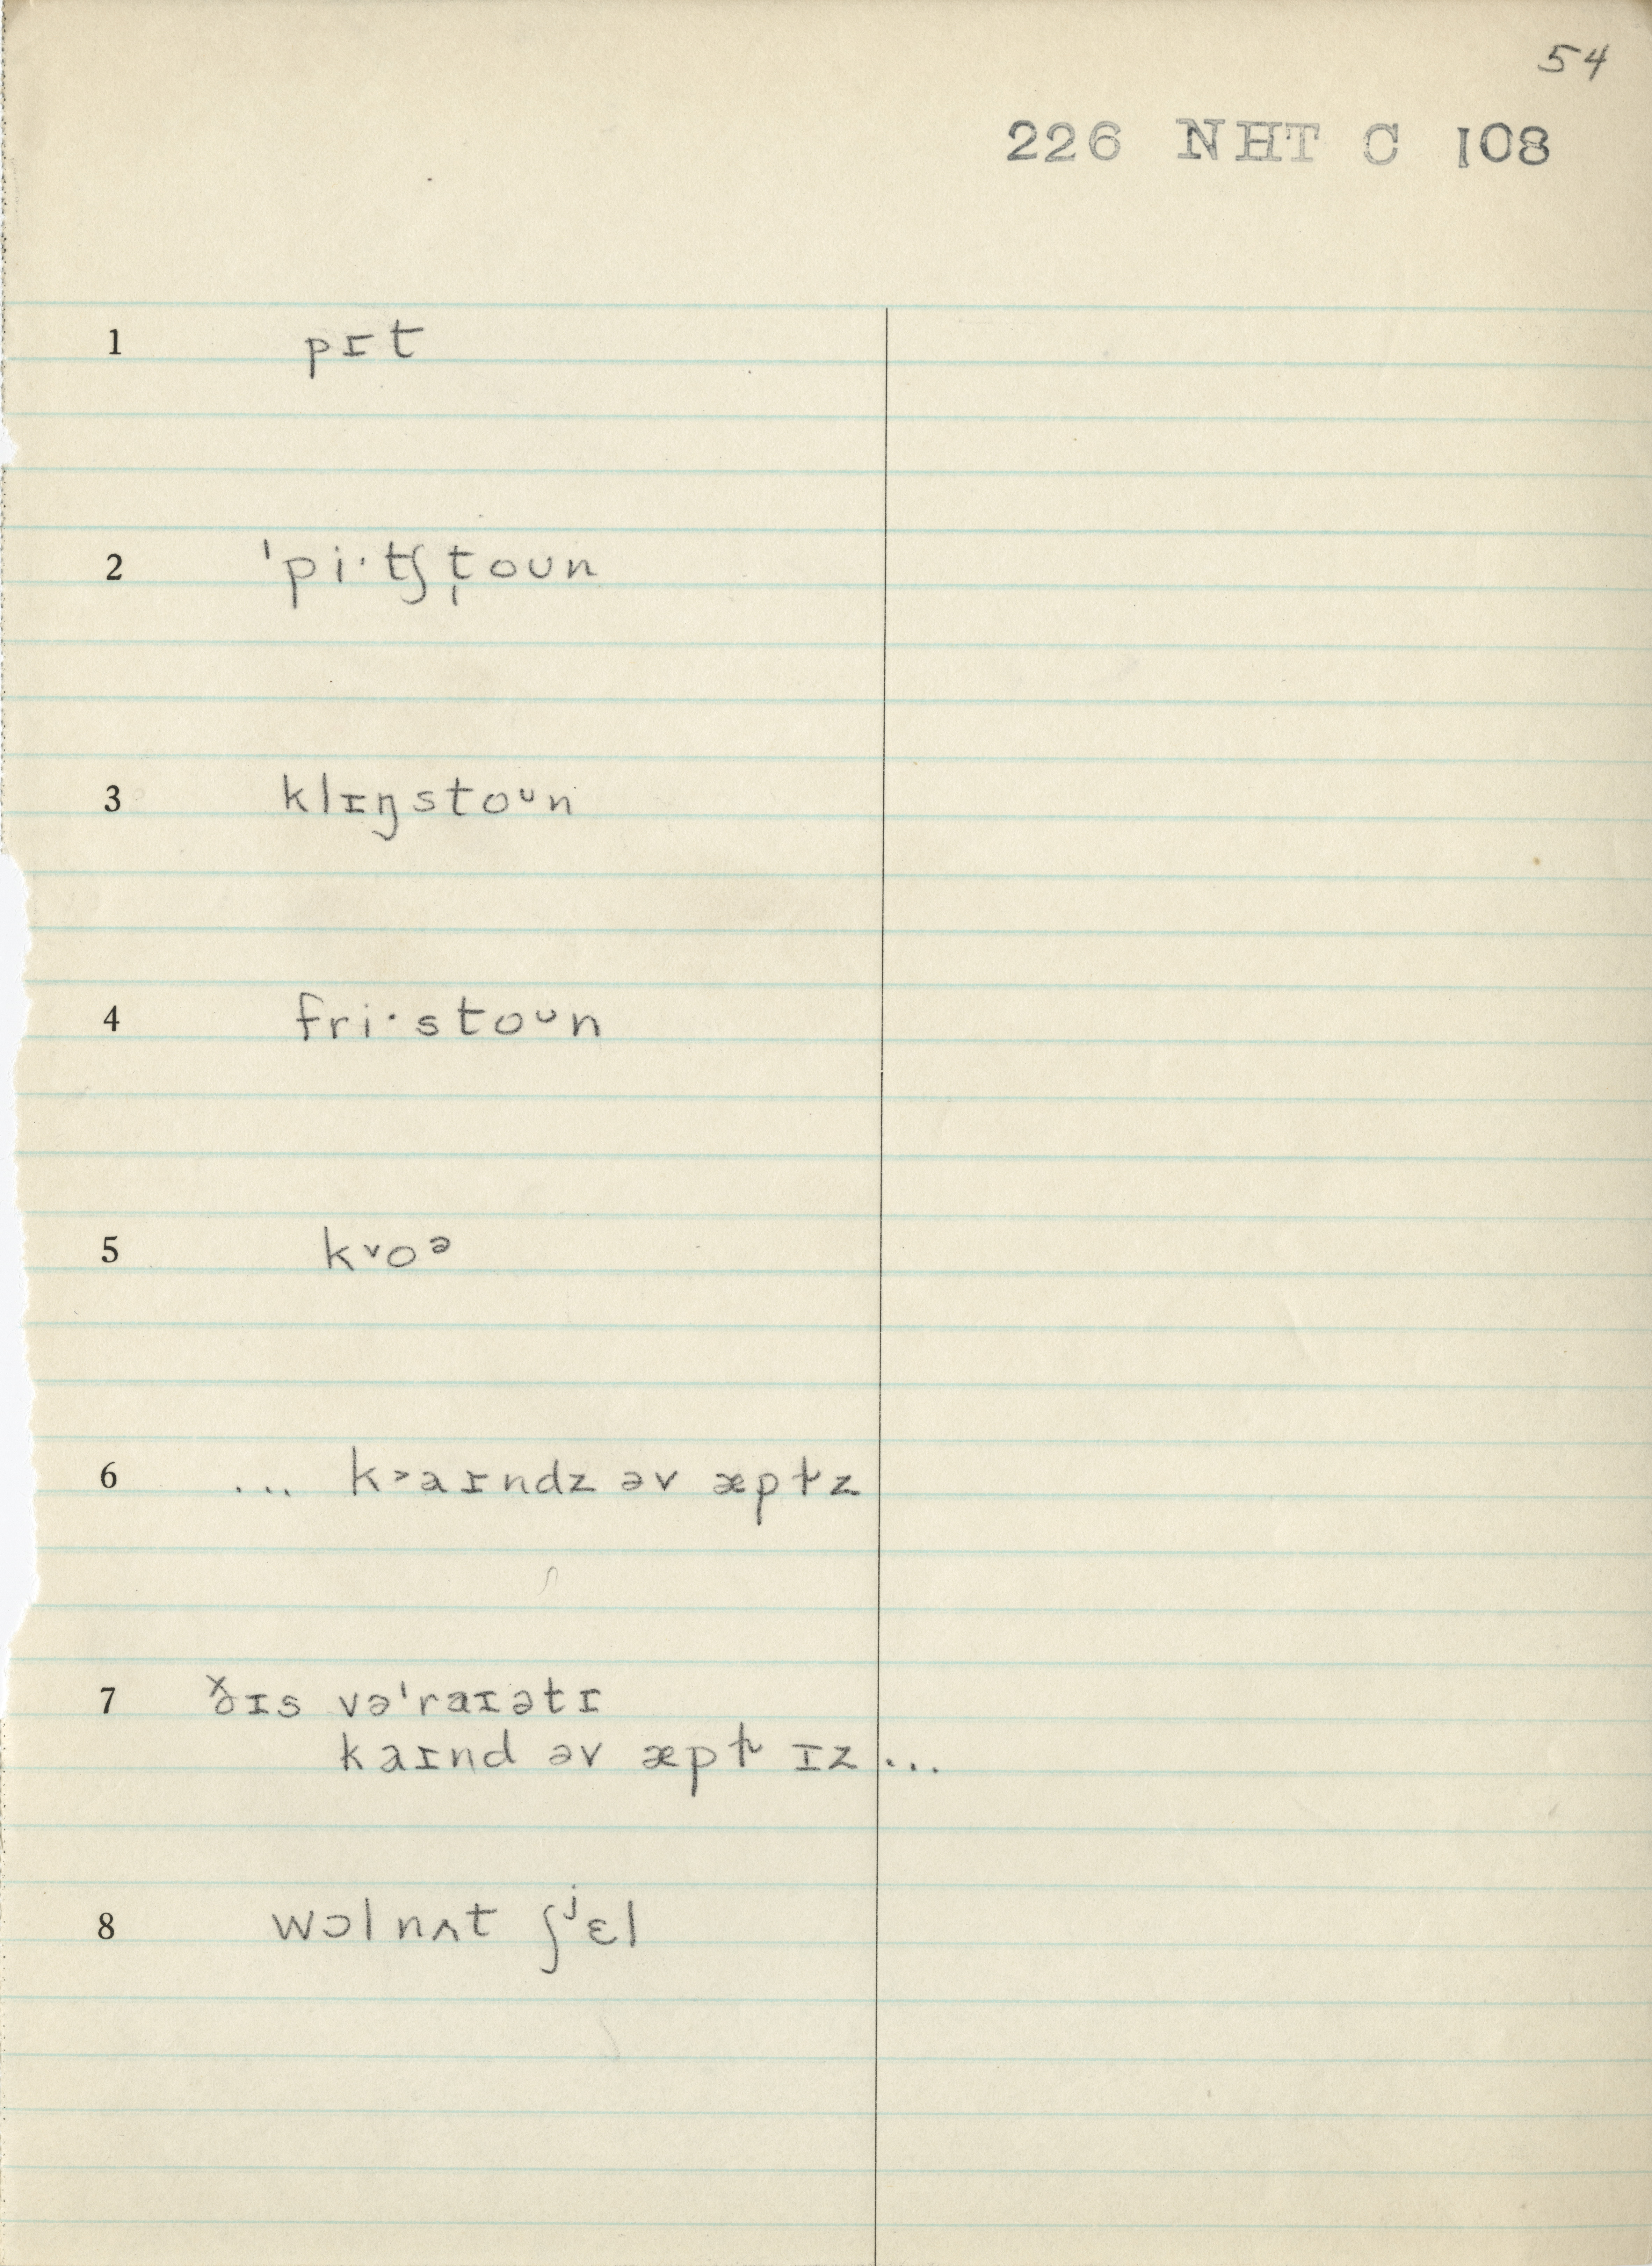 54
226 NHT C 108
1 pɪt
2 ˈpi·tʃt̩oun
3 klɪŋstoᶸn
4 fri·stoᶸn
5 k˅oᵊ
6 ... k˃aɪndz əv æpɫ̩z
7 ðɪs vəˈraɪətɪ
kaɪnd əv æpɫ̩ ɪz...
8 wɔlnʌt ʃʲɛl